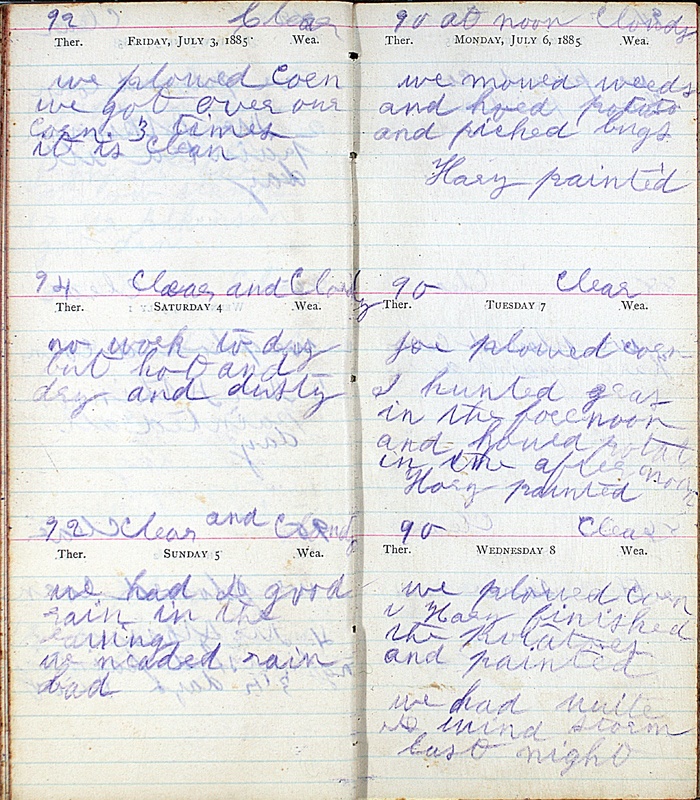 92 Clear
Ther. FRIDAY, JULY 3, 1885 Wea.
we plowed Corn
we got over our
Corn. 3 times
it is clean
94 Clear and Cloudy
Ther. SATURDAY 4 Wea.
no work to day
but hot and
dry and dusty
92 Clear and Cloudy
Ther. SUNDAY 5 Wea.
we had a good
rain in the
we neaded rain
bad
90 at noon Cloudy
Ther. MONDAY, JULY 6, 1885 Wea.
we mowed weeds
and hoed potato
and piched bugs
Hary painted
90 Clear
Ther. TUESDAY 7 Wea.
Joe plowed corn
I hunted
in the forenoon
and howed potato
in the afternoon
Hary painted
90 Clear
Ther. WEDNESDAY 8 Wea.
we plowed Corn
Hary finished
the potatoes
and painted
we had quite
a wind storm
Last night